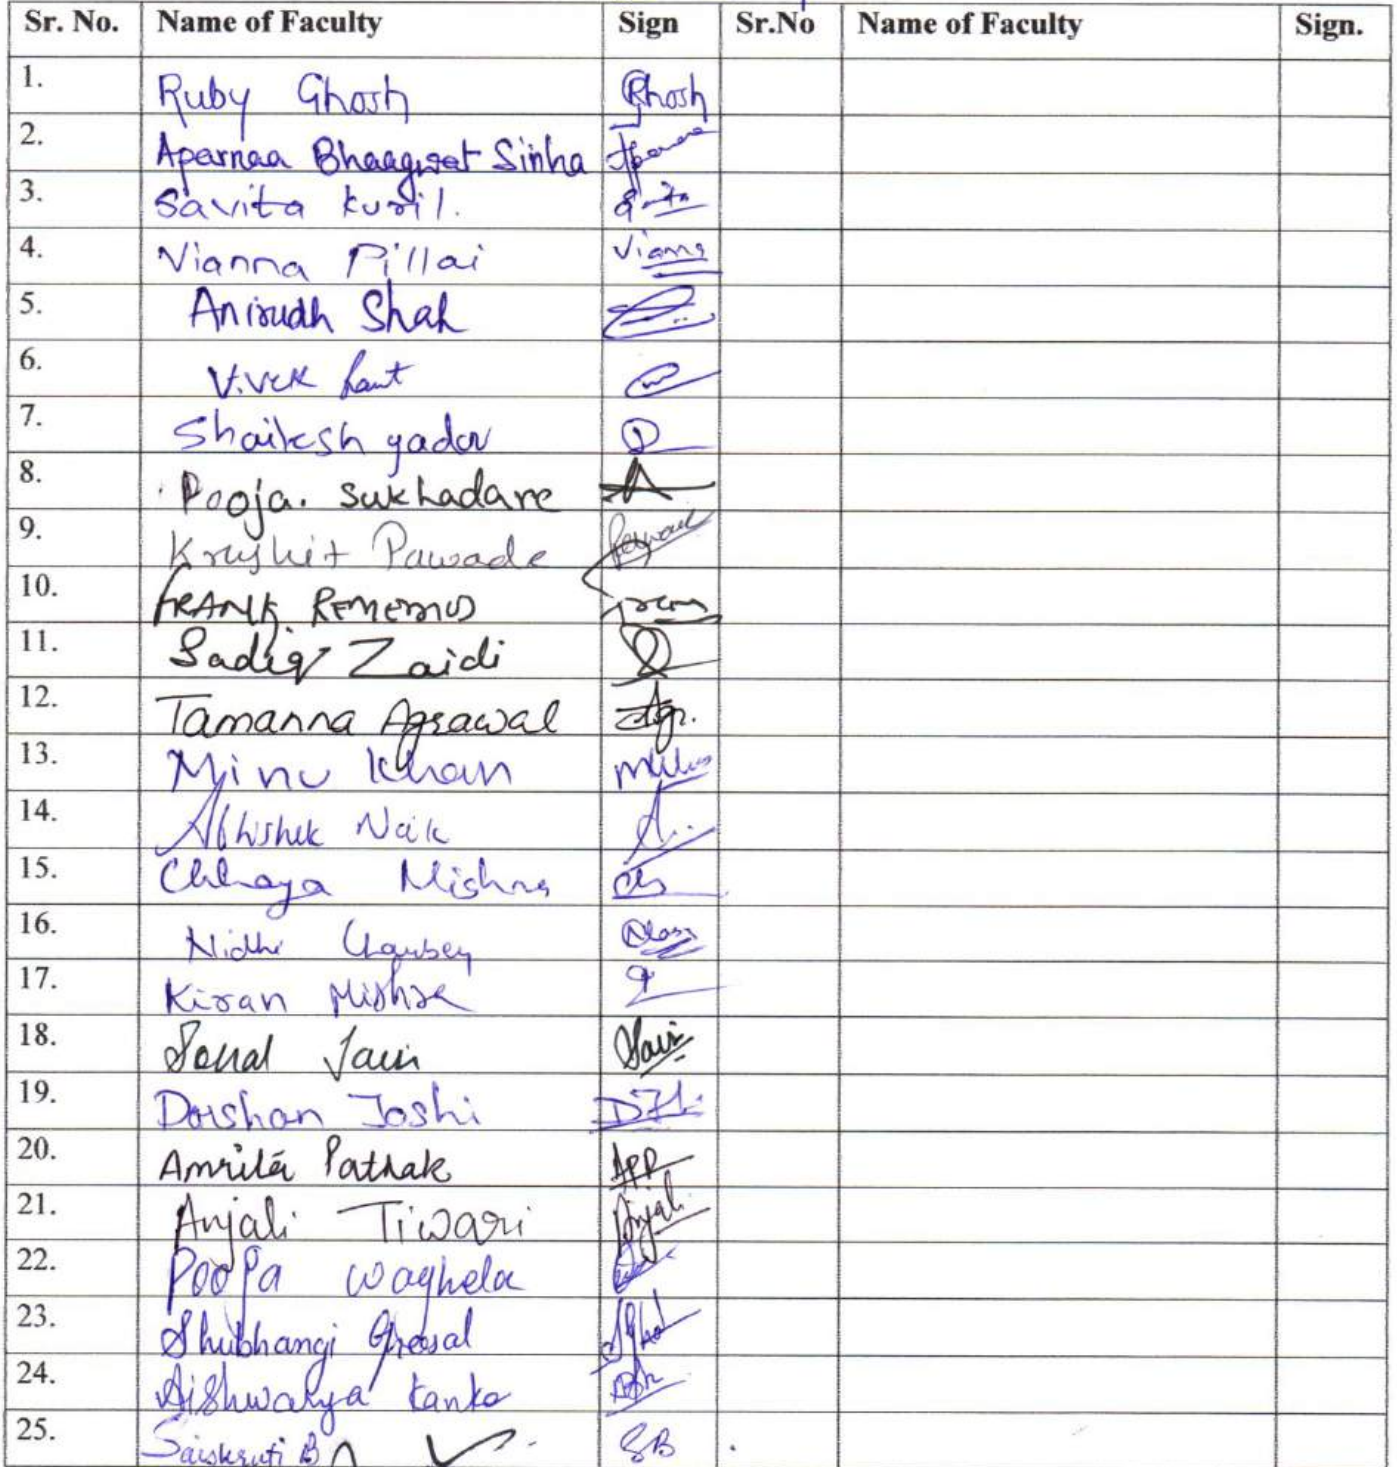 Sr. No. Name of Faculty Sign Sr.No Name of Faculty Sign.
1. Ruby Ghosh Ghosh
2. Aparnaa Bhaagwat Sinha
3. Savita Kuril.
4. Vianna Pillai
5. Anirudh Shah
6. Vivek Raut
7. Shailesh yadav
8. Pooja. Sukhadare
9. Krushit Pawade
10. FRANK
11. Sadiq Zaidi
12. Tamanna Agrawal Agr.
13. Minu Khan
14. Abhishek Naik
15. Chhaya Mishra
16. Nidhi Chaubey
17. Kiran Mishra
18. Sonal Jain
19. Darshan Joshi
20. Amrita Pathak
21. Anjali Tiwari Anjali
22. Pooja Waghela
23. Shubhangi
24. Aishwarya
25. Saiskruti B SB